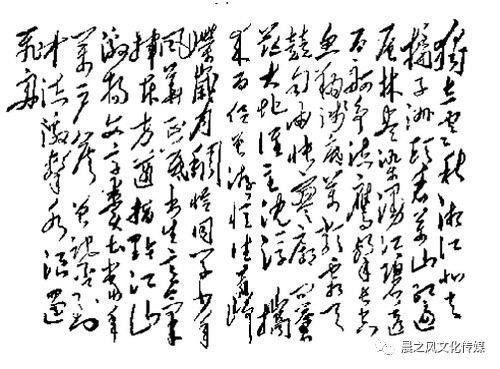 独立寒秋湘江北去
橘子洲头看万山红遍
层林尽染漫江碧透
百舸争流鹰击长空
鱼翔浅底万类霜天
竞自由怅寥廓问苍
茫大地谁主沉浮 携
来百侣曾游忆往昔峥
嵘岁月稠恰同学少年
风华正茂书生意气
挥斥方遒指点江山
激扬文字粪土当年
万户侯曾记否到
中流击水浪遏
飞舟
晨之风文化传媒